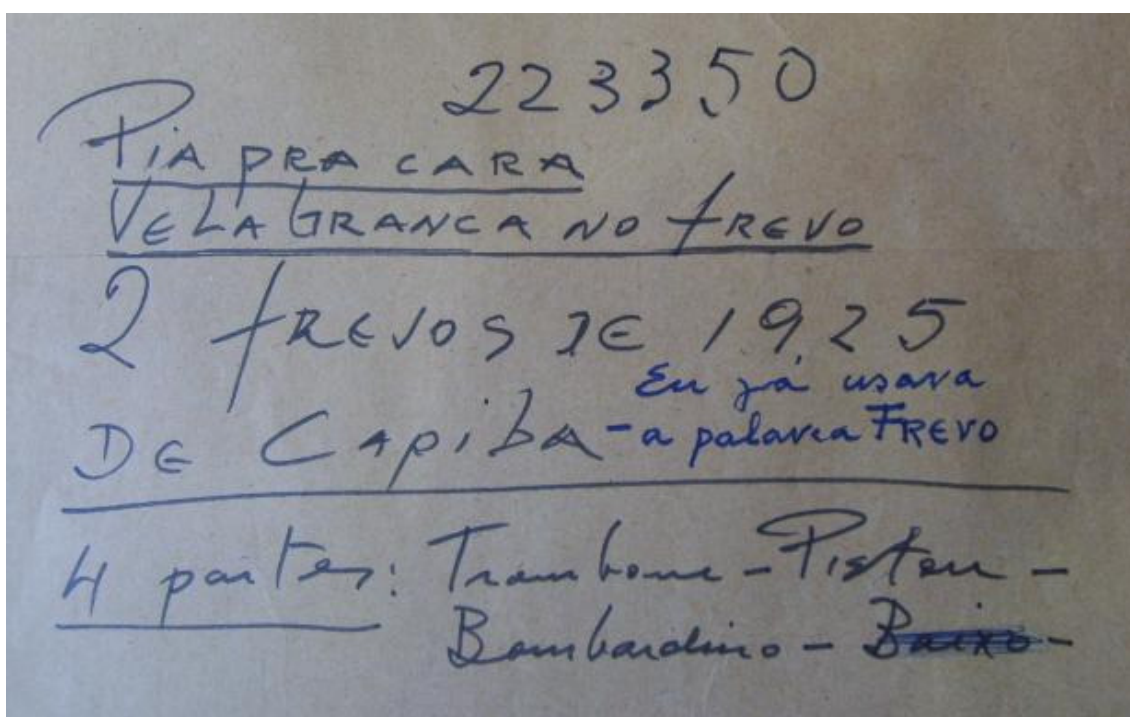 223350
PIA PRA CARA
VELA BRANCA NO FREVO
2 FREVOS DE 1925
DE Capiba - Eu já usava
a palavra FREVO
4 partes: Trombone - Piston -
Bombardino - Baixo -